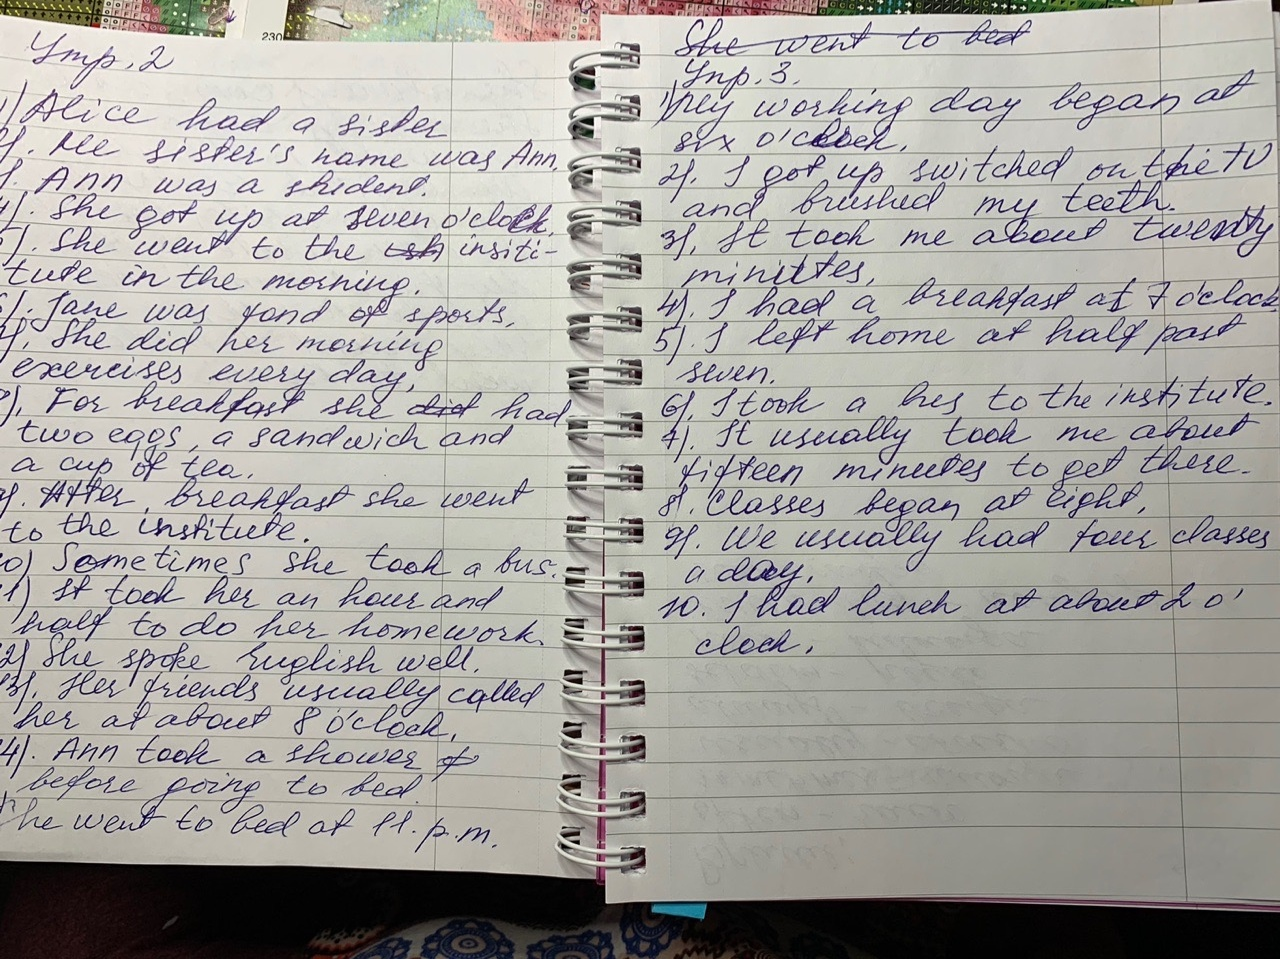 230
Упр. 2
1) Alice had a sister
2). Me sister's name was Ann.
). Ann was a student.
4). She got up at seven o'clock.
5). She went to the insiti-
tute in the morning.
6). Jane was fond of sports.
). She did her morning
exercises every day.
8). For breakfast she did had
two eggs, a sandwich and
a cup of tea.
9). After, breakfast she went
to the institute.
10) Sometimes she took a bus.
11) It took her an hour and
half to do her homework.
12) She spoke English well.
13). Her friends usually called
her at about 8 o'clock.
14). Ann took a shower
before going to bed.
She went to bed at 11. p.m.
She went to bed
Упр. 3.
1) My working day began at
six o'clock.
2). I got up switched on the TV
and brushed my teeth.
3). It took me about twenty
minutes.
4). I had a breakfast at 7 o'clock.
5). I left home at half past
seven.
6). I took a bus to the institute.
7). It usually took me about
fifteen minutes to get there.
8). Classes began at eight.
9). We usually had four classes
a day.
10. I had lunch at about 2 o'
clock.